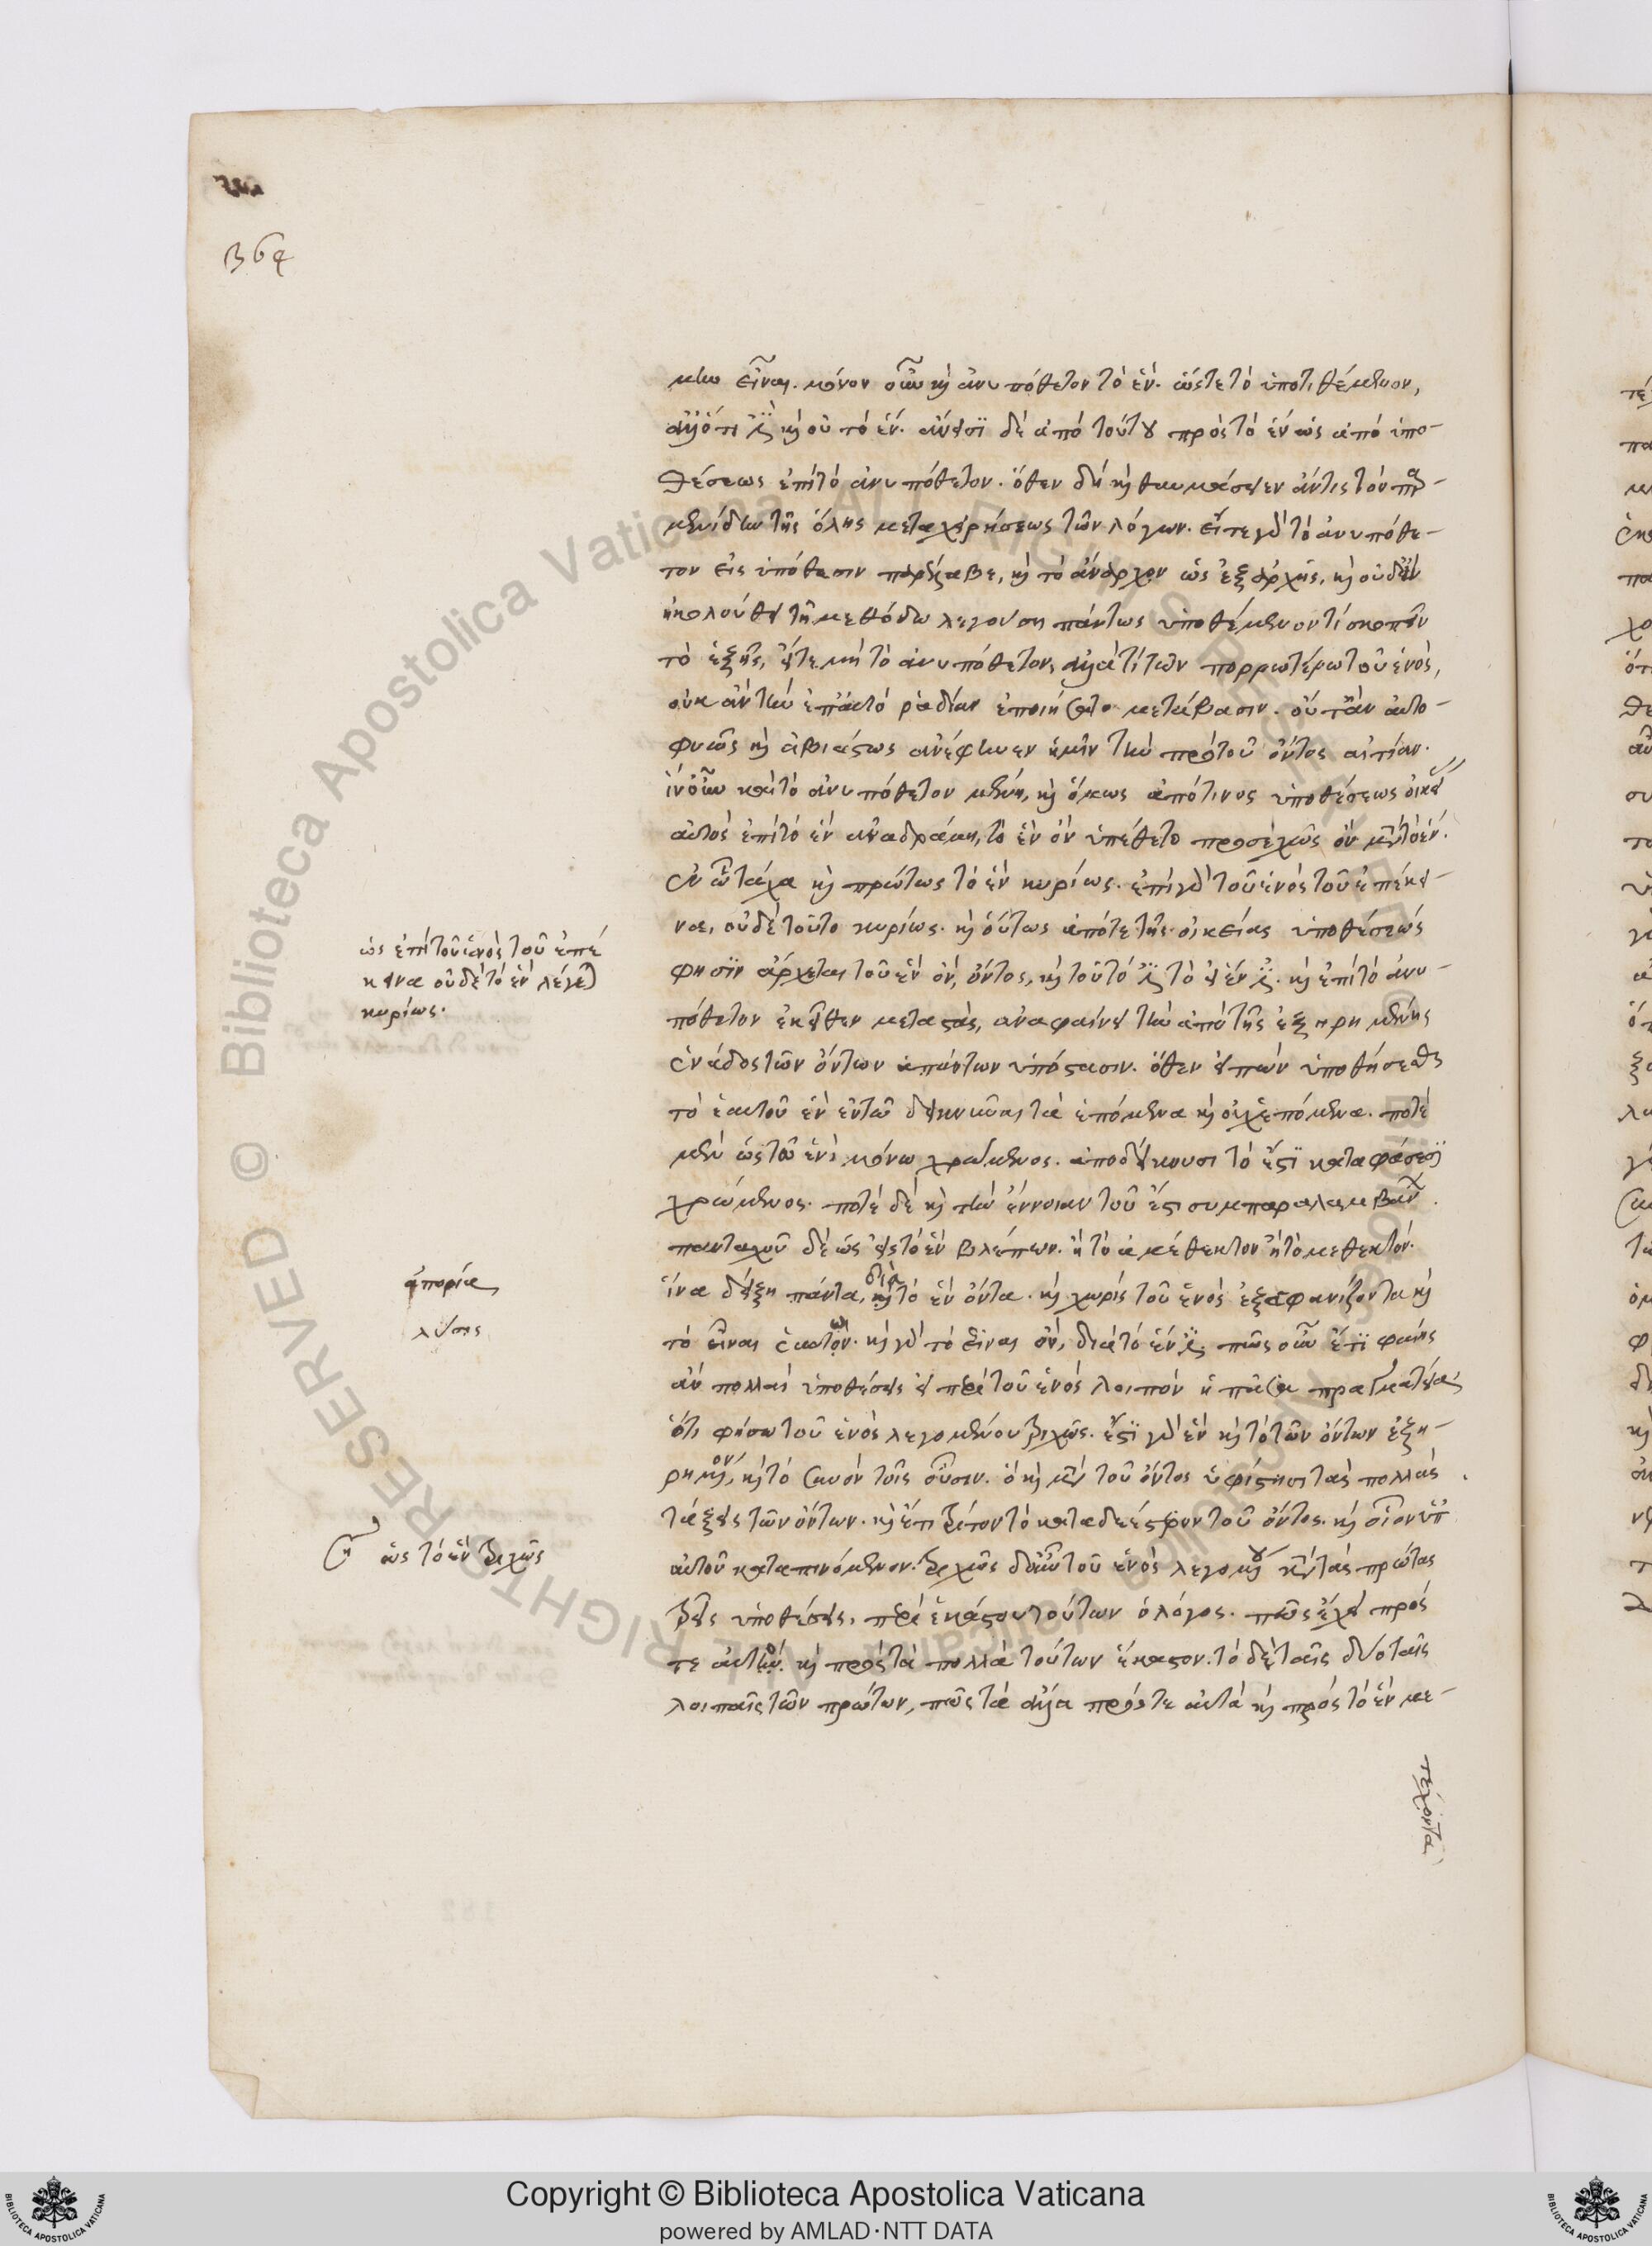 364
μην εἶναι. μόνον οὖν καὶ ἀνυπόθετον τὸ ἕν. ὥστε τὸ ὑποτιθέμενον,
ἄλλό τι ἐστὶ καὶ οὐ τὸ ἕν. ἄνεισι δὲ ἀπὸ τούτου πρὸς τὸ ἓν ὡς ἀπὸ ὑπο-
θέσεως ἐπὶ τὸ ἀνυπόθετον. ὅθεν δὴ καὶ θαυμάσειεν ἄν τις τὸν παρ-
μενίδην τῆς ὅλης μεταχειρήσεως τῶν λόγων. εἴτε γὰρ τὸ ἀνυπόθε-
τον εἰς ὑπόθεσιν παρέλαβε, καὶ τὸ ἄναρχον ὡς ἐξ ἀρχῆς, καὶ οὐδὲν
ἠκολούθει τῇ μεθόδω λεγούση πάντως ὑποθέμενόν τι σκοπεῖν
τὸ ἑξῆς, εἴτε μὴ τὸ ἀνυπόθετον, ἀλλά τι τῶν πορρωτέρω τοῦ ἑνὸς,
οὐκ ἂν τὴν ἐπ' αὐτὸ ῥαδίαν ἐποιήσατο μετάβασιν. οὔτ' ἂν αὐτο-
φυῶς καὶ ἀβιάστως ἀνέφηνεν ἡμῖν τὴν πρὸ τοῦ ὄντος αἰτίαν.
ἵν' οὖν καὶ τὸ ἀνυπόθετον μένη, καὶ ὅμως ἀπό τινος ὑποθέσεως οἰκεί
αὐτὸς ἐπὶ τὸ ἓν ἀναδράμη, τὸ ἓν ὂν ὑπέθετο προσεχῶς ὂν μετὰ τὸ ἕν.
ἐν ὧ τάχα καὶ πρώτως τὸ ἓν κυρίως. ἐπὶ γὰρ τοῦ ἑνὸς τοῦ ἐπέκει-
να, οὐδὲ τοῦτο κυρίως. καὶ οὕτως ἀπό τε τῆς οἰκείας ὑποθέσεώς
φησιν ἄρχεται τοῦ ἓν ὂν, ὄντος, καὶ τοῦτό ἐστι τὸ εἰ ἕν ἐστι. καὶ ἐπὶ τὸ ἀνυ-
πόθετον ἐκεῖθεν μεταστὰς, ἀναφαίνει τὴν ἀπὸ τῆς ἐξηρημένης
ἑνάδος τῶν ὄντων ἁπάντων ὑπόστασιν. ὅθεν εἰπὼν ὑποθήσεσθαι
τὸ ἑαυτοῦ ἓν ἐν τῶ δεικνῦναι τὰ ἑπόμενα καὶ οὐχ ἑπόμενα. ποτὲ
μὲν ὡς τῶ ἑνὶ μόνω χρώμενος. ἀποδείκνυσι τὸ ἔστι καταφάσεσι
χρώμενος. ποτὲ δὲ καὶ τὴν ἔννοιαν τοῦ ἔστι συμπαραλαμβάνων.
πανταχοῦ δὲ ὡς εἰς τὸ ἓν βλέπων. ἢ τὸ ἀμέθεκτον ἢ τὸ μεθεκτόν.
ἵνα δείξη πάντα, διὰ τὸ ἓν ὄντα. καὶ χωρὶς τοῦ ἑνὸς ἐξαφανίζοντα καὶ
τὸ εἶναι ἑαυτῶν. καὶ γὰρ τὸ εἶναι ὂν, διὰ τὸ ἕν ἐστι. πῶς οὖν ἔτι φαίης
ἂν πολλαὶ ὑποθέσεις εἰ περὶ τοῦ ἑνὸς λοιπὸν ἡ πᾶσα πραγματεία;
ὅτι φήσω τοῦ ἑνὸς λεγομένου τριχῶς. ἔστι γὰρ ἓν καὶ τὸ τῶν ὄντων ἐξη-
ρημένον, καὶ τὸ συνὸν τοῖς οὖσιν. ὃ καὶ μετὰ τοῦ ὄντος ὑφίστησι τὰς πολλὰς
τάξεις τῶν ὄντων. καὶ ἔτι τρίτον τὸ καταδεέστερον τοῦ ὄντος. καὶ οἷον ὑπ'
αὐτοῦ καταπινόμενον. τριχῶς δ' οὖν τοῦ ἑνὸς λεγομένου κατὰ τὰς πρώτας
τρεῖς ὑποθέσεις, περὶ ἑκάστου τούτων ὁ λόγος. πῶς ἔχει πρός
τε αὐτὸ. καὶ πρὸς τὰ πολλὰ τούτων ἕκαστον. τὸ δὲ ταῖς δυσὶ ταῖς
λοιπαῖς τῶν πρώτων, πῶς τὰ ἄλλα πρός τε αὐτὰ καὶ πρὸς τὸ ἓν με-
τέχοντα
ὡς ἐπὶ τοῦ ἑνὸς τοῦ ἐπέ
κεινα οὐδὲ τὸ ἓν λέγεται
κυρίως.
ἀπορία
λύσις
ση ὡς τὸ ἓν τριχῶς
Copyright © Biblioteca Apostolica Vaticana
powered by AMLAD·NTT DATA